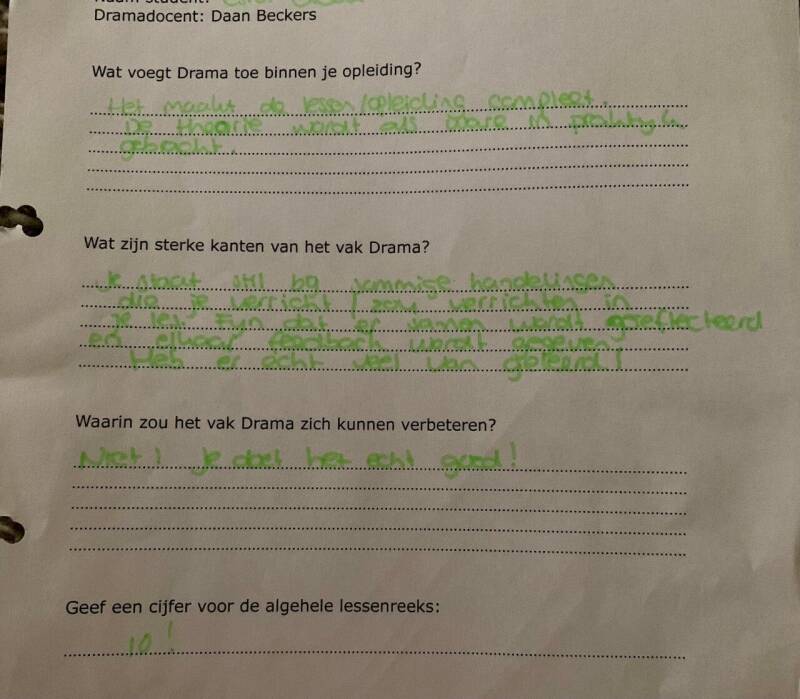 Naam student:
Dramadocent: Daan Beckers
Wat voegt Drama toe binnen je opleiding?
Het maakt de lessen/opleiding compleet.
De theorie wordt als ware in praktijk
gebracht.
Wat zijn sterke kanten van het vak Drama?
Je staat stil bij sommige handelingen
die je verricht / zou verrichten in
je les. Fijn dat er samen wordt gereflecteerd
en elkaar feedback wordt gegeven!
Heb er echt veel van geleerd!
Waarin zou het vak Drama zich kunnen verbeteren?
Niet! Je doet het echt goed!
Geef een cijfer voor de algehele lessenreeks:
10!